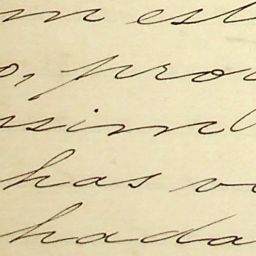 m est
o, prov
ssim
has v
hada